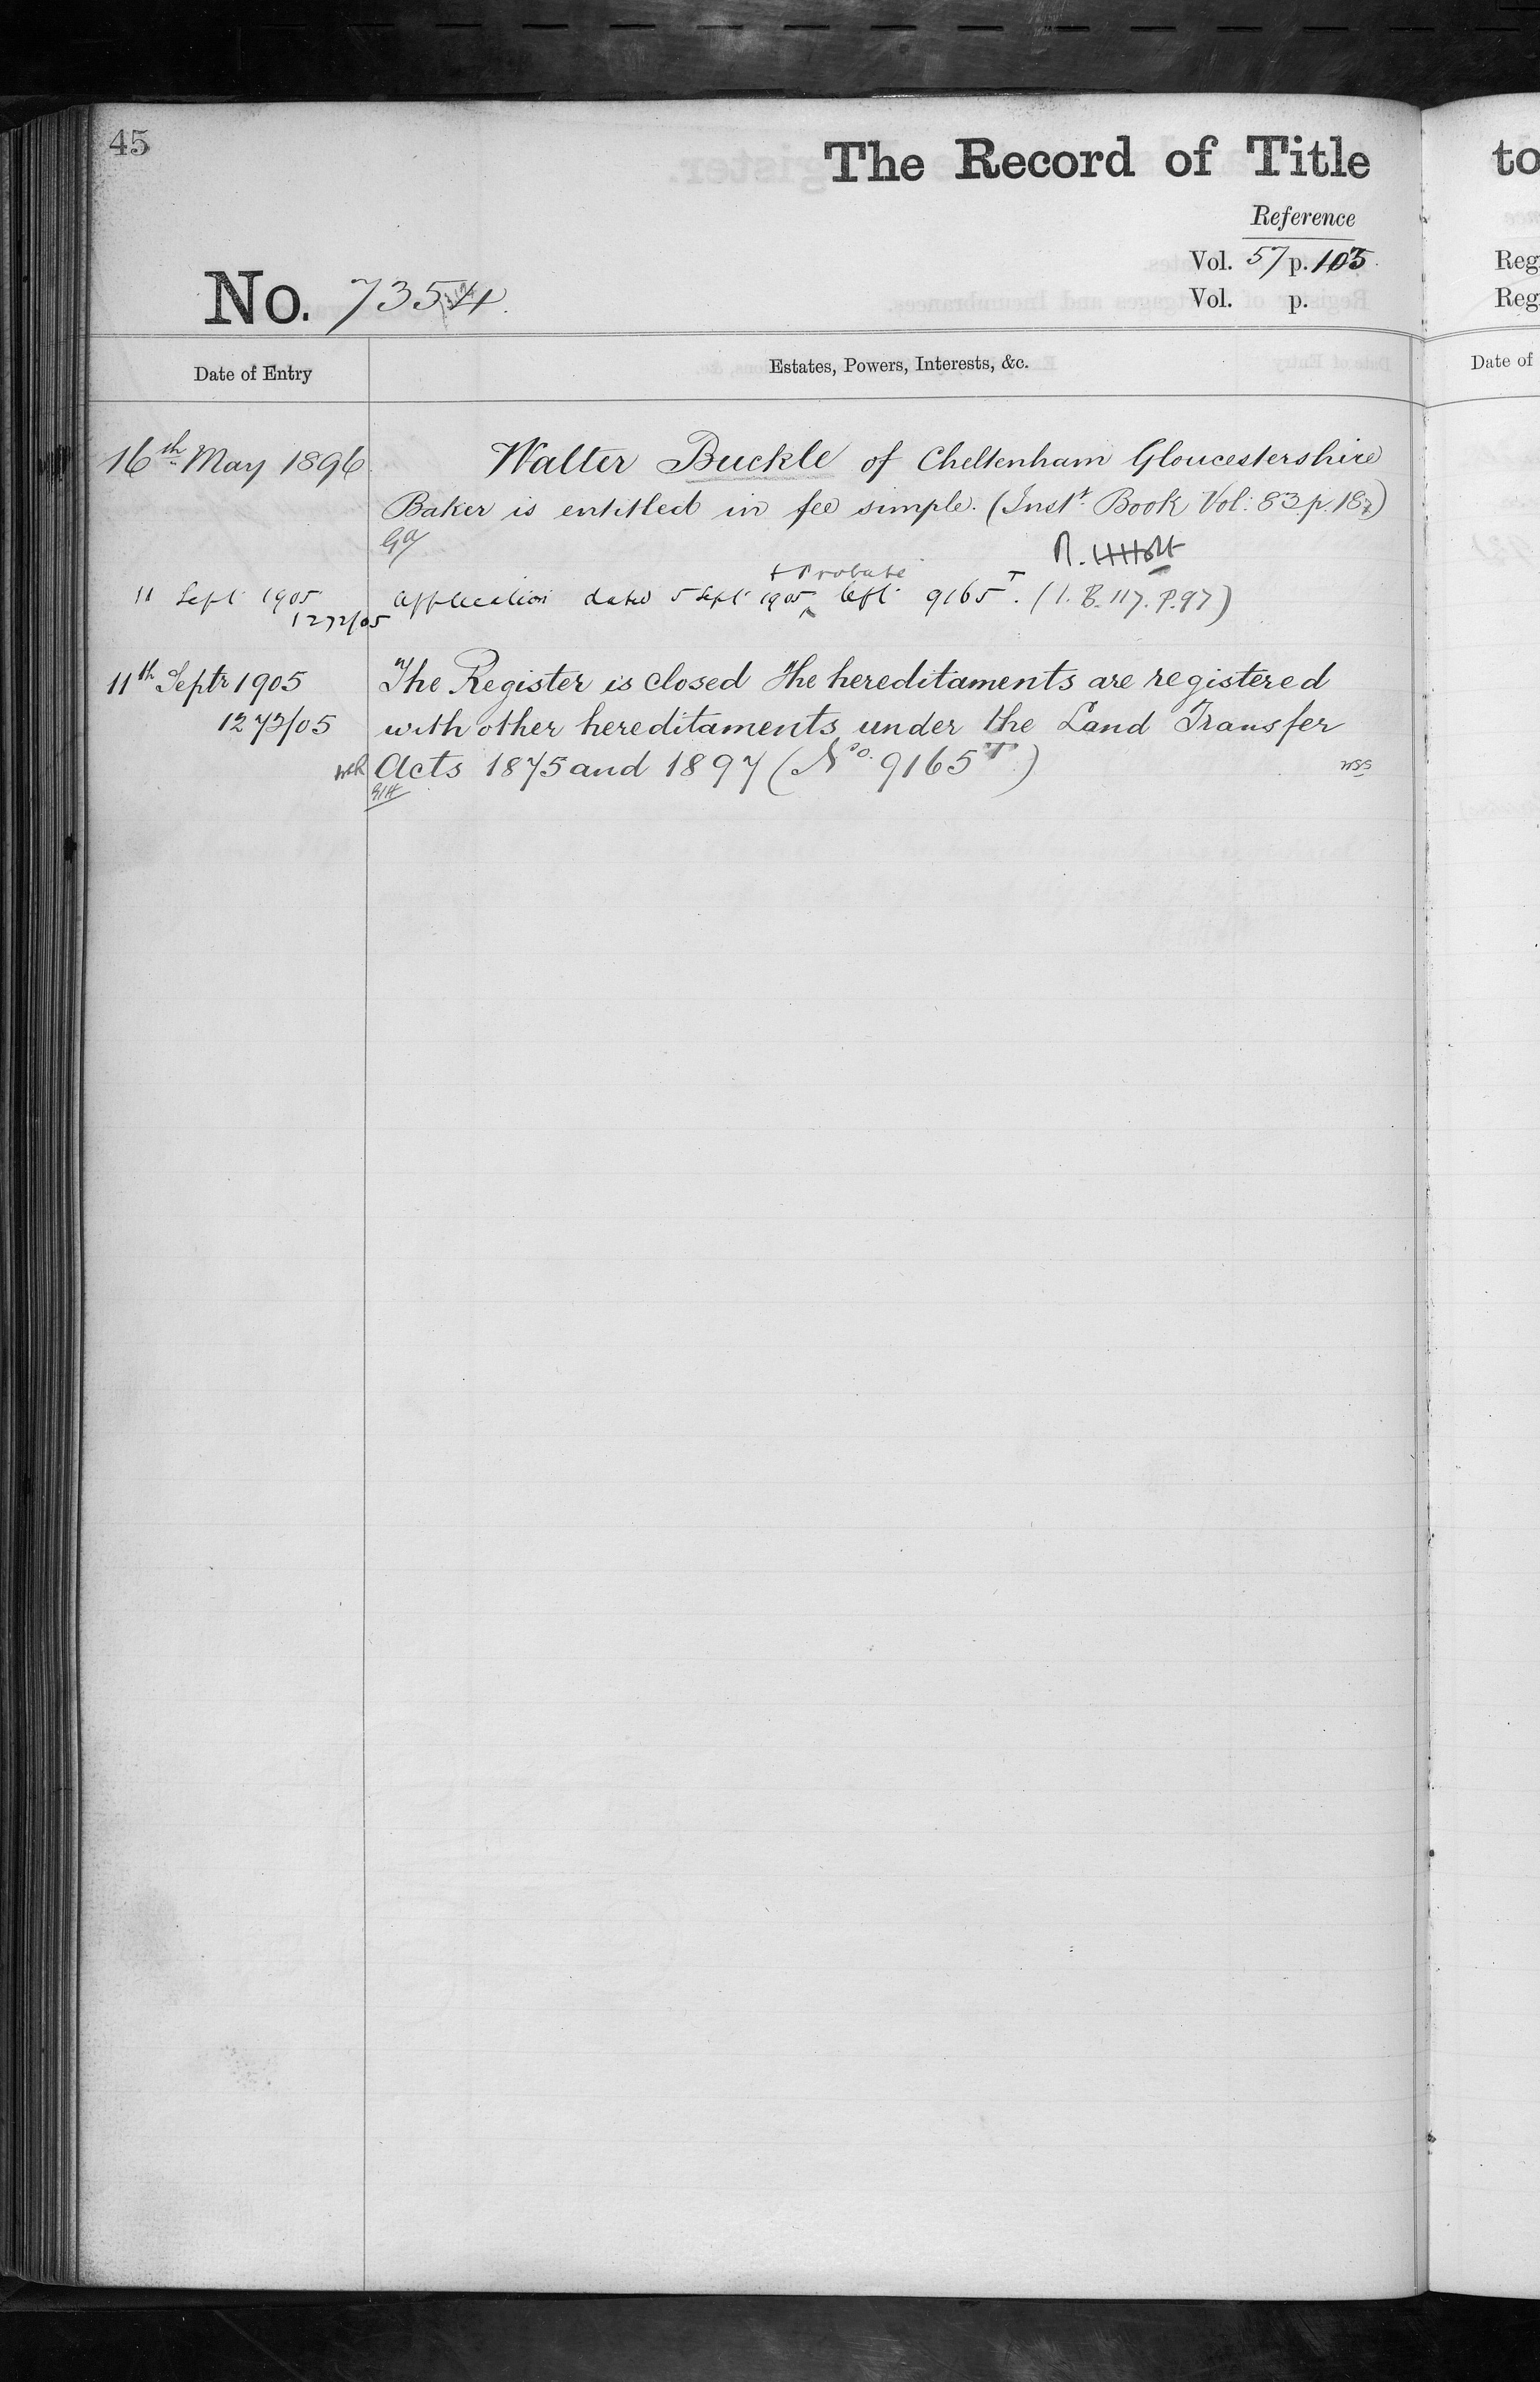 45
The Record of Title
to
Reference
Vol. 57 p. 103
Reg
No. 7354
Vol. p.
Reg
Date of Entry
Estates, Powers, Interests, &c.
Date of
16th May 1896
Walter Buckle of Cheltenham Gloucestershire
Baker is entitled in fee simple. (Inst. Book Vol: 83 p. 187)
+ Probate
11 Sept 1905
application dated 5 Sept 1905 left 9165 T. (I. B. 117. P. 97)
1272/05
11th Septr 1905
The Register is closed The hereditaments are registered
1272/05
with other hereditaments under the Land Transfer
Acts 1875 and 1897 (No. 9165 T)